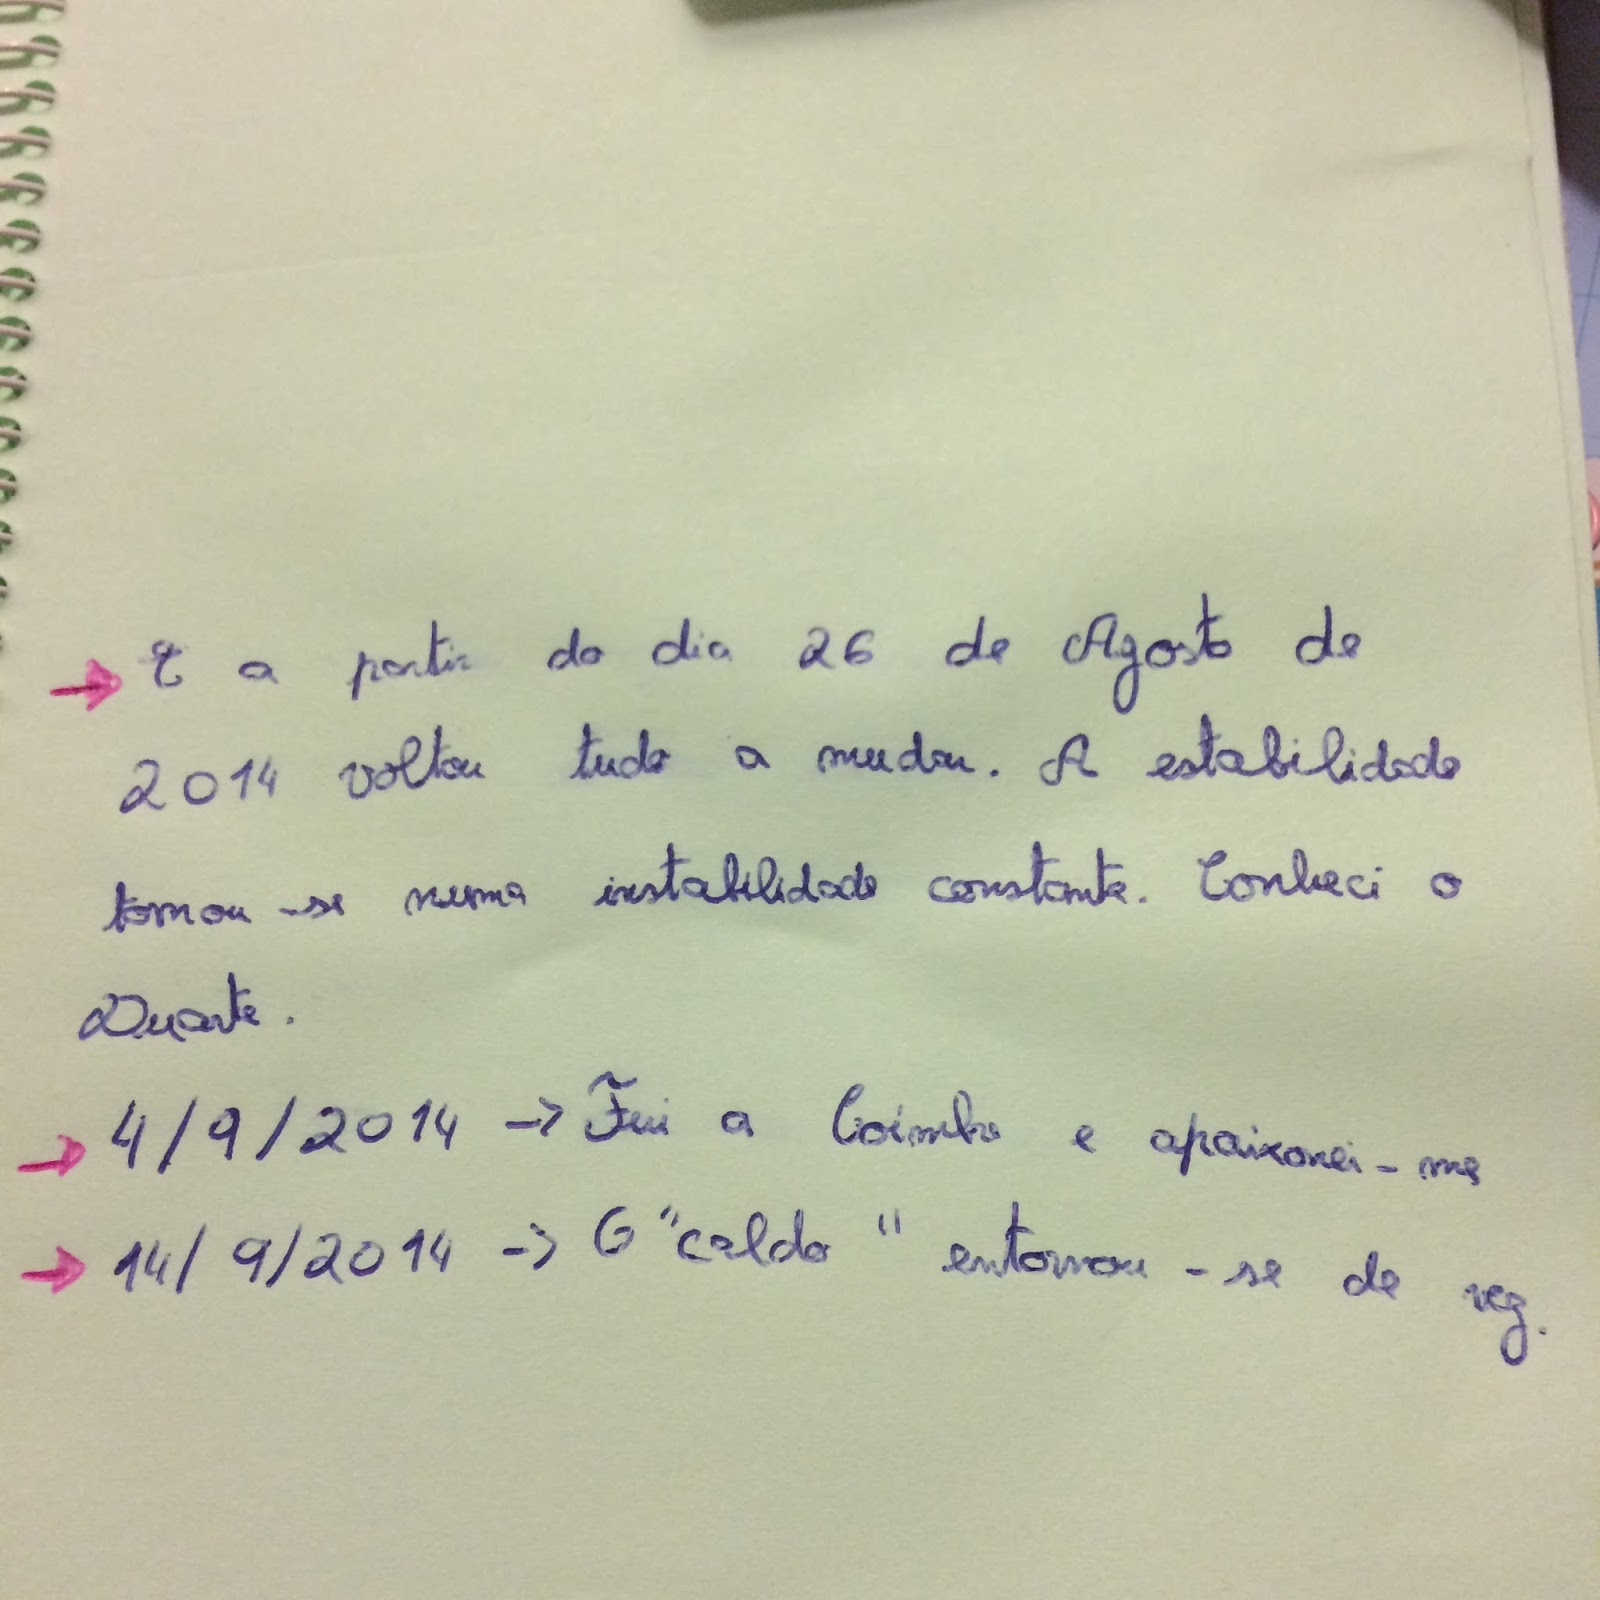 → E a partir do dia 26 de Agosto de
2014 voltou tudo a mudar. A estabilidade
tornou-se numa instabilidade constante. Conheci o
Duarte.
→ 4/9/2014 -> Fui a Coimbra e apaixonei-me
→ 14/9/2014 -> O "caldo" entornou-se de vez.